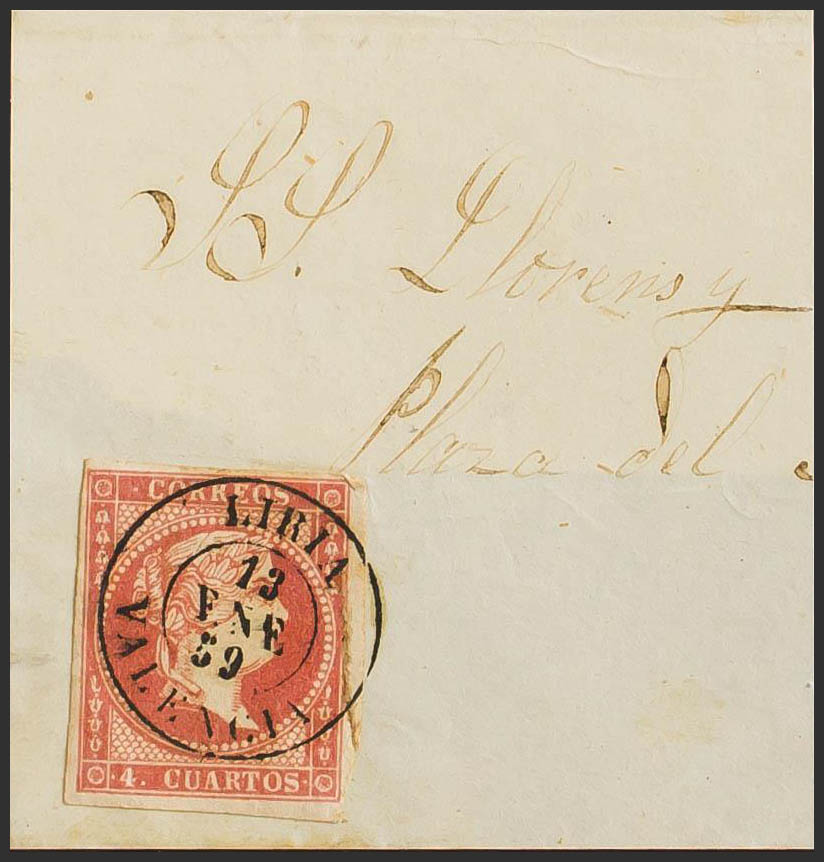 SS. Llorens y
Plaza del
CORREOS
LIRIA
13
ENE
59
VALENCIA
4. CUARTOS